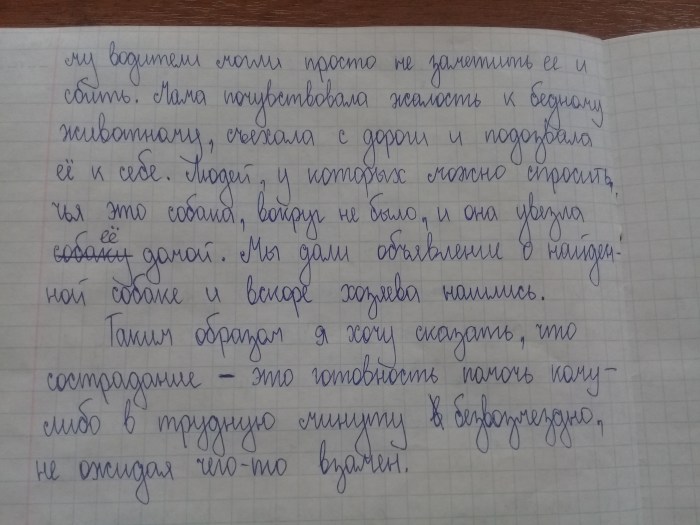 му водители могли просто не заметить ее и
сбить. Мама почувствовала жалость к бедному
животному, съехала с дороги и подозвала
её к себе. Людей, у которых можно спросить,
чья это собака, вокруг не было, и она увезла
собаку её домой. Мы дали объявление о найден-
ной собаке и вскоре хозяева нашлись.
Таким образом я хочу сказать, что
сострадание - это готовность помочь кому-
либо в трудную минуту безвозмездно,
не ожидая чего-то взамен.